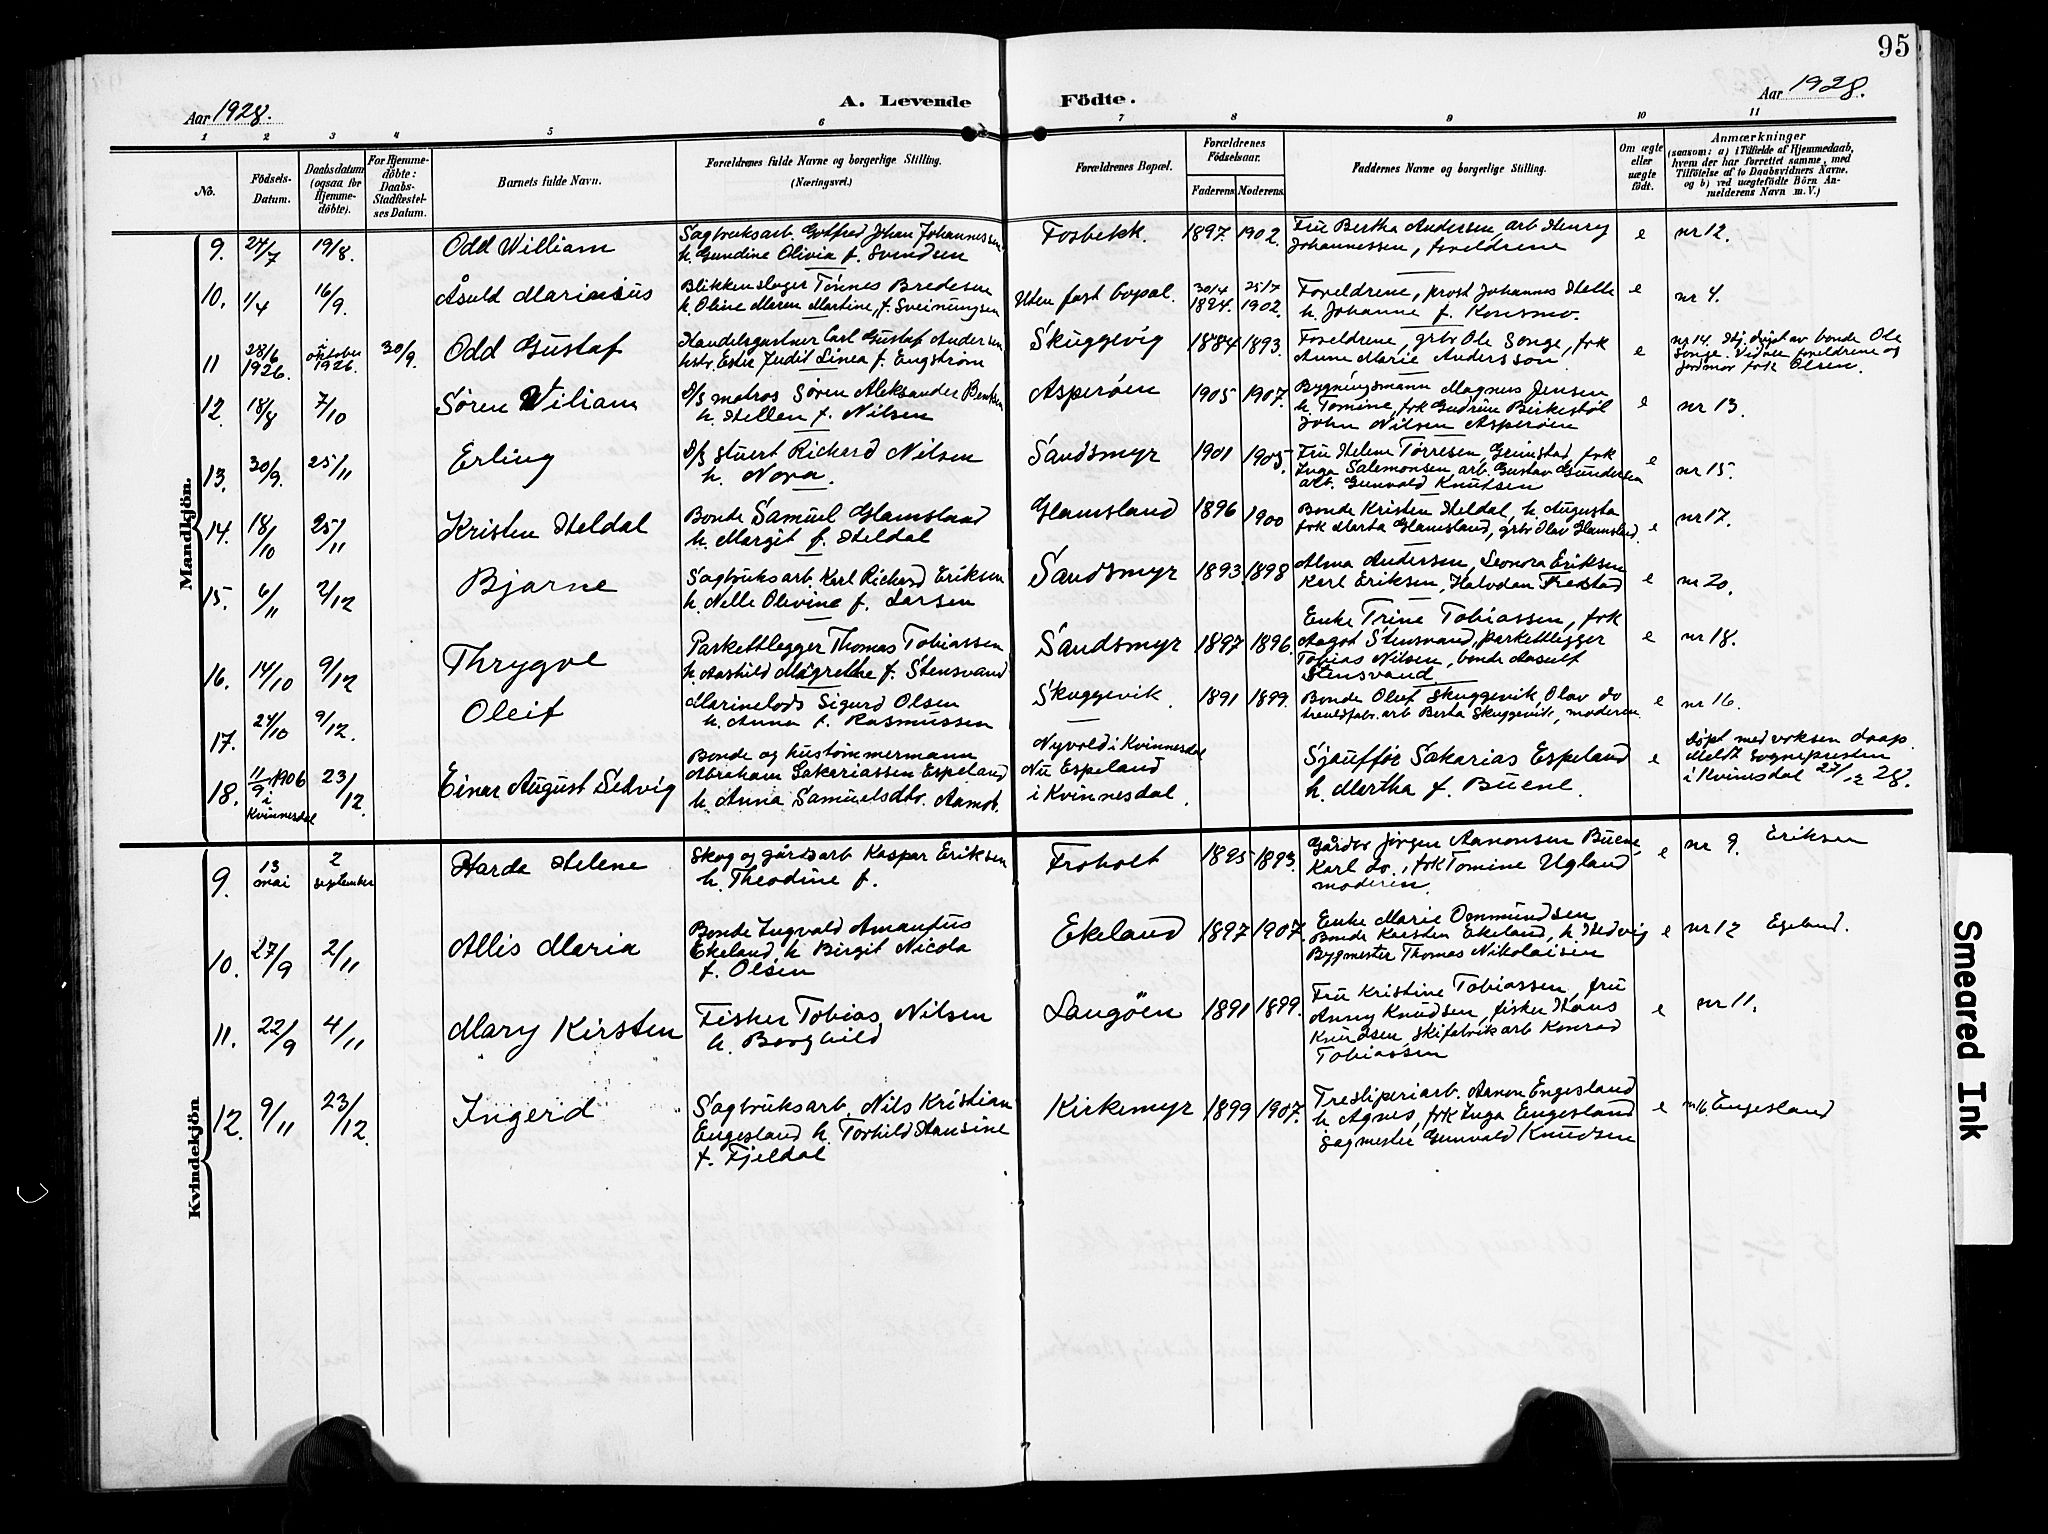 95
Aar 1928.
A. Levende Födte.
Aar 1928.
1 2 3 4 5 6 7 8 9 10 11
No.
Födsels-Datum.
Daabsdatum (ogsaa for Hjemmedöbte).
For Hjemmedöbte: Daabs-Stadfæstelses Datum.
Barnets fulde Navn.
Forældrenes fulde Navne og borgerlige Stilling.
(Næringsvei.)
Forældrenes Bopæl.
Forældrenes Födselsaar.
Faderens. Moderens.
Faddernes Navne og borgerlige Stilling.
Om ægte eller uægte födt.
Anmærkninger
(saasom: a) i Tilfælde af Hjemmedaab, hvem der har forrettet samme, med Tilföielse af to Daabsvidners Navne. og b) ved uægtefödte Börn Anmelderens Navn m. V.)
Mandkjön.
9. 27/7 19/8. Odd William
Sagbruksarb. Gotfred Johan Johannessen
h. Gundine Olivia f. Svendsen
Fosbekk. 1897. 1902.
Fru Bertha Andersen arb Henry
Johannessen, foreldrene
e nr 12.
10. 1/4 16/9. Åsuld Marinius
Blikkenslager Tønnes Bredesen
h. Oline Maren Martine, f. Sveinungsen
Uten fast bopal. 30/4 1894. 25/7 1902.
Foreldrene, prost Johannes Helle
h. Johanne f. Konsmo.
e nr 4.
11 28/6 1926. i oktober 1926. 30/9. Odd Gustaf
Handelsgartner Carl Gustaf Andersen
hstr. Ester Judit Linea f. Engstrøm
Skuggevig 1884 1893.
Foreldrene, grbr Ole Songe, frk
Anne Marie Andersson
e nr 14. Hj.døpt av bonde Ole
Songe. Vidner foreldrene og
jordmor frk Olsen.
12. 18/8 7/10 Søren Viliam
D/S matros Søren Aleksander Bentsen
h. Hellen f. Nilsen
Asperøen 1905 1907.
Bygningsmann Magnus Jensen
h. Tomine, frk Gudrun Birkestøl
John Nilsen Asperøen
e nr 13.
13. 30/9. 25/11 Erling
D/S stuert Richard Nilsen
h. Nora.
Sandsmyr 1901 1905.
Fru Helene Tørresen, Grimstad, frk
Inga Salemonsen arb. Gustav Gundersen
arb. Gunvald Knutsen
e nr 15.
14. 18/10 25/11 Kristen Heldal
Bonde Samuel Glamsland
h. Margit f. Heldal
Glamsland 1896 1900
Bonde Kristen Heldal, h. Augusta
frk Marta Glamsland, grbr Olav Glamsland.
e nr 17.
15. 6/11 2/12 Bjarne
Sagbruksarb. Karl Richard Eriksen
h. Nelle Olivine f. Larsen
Sandsmyr 1893 1898
Alma Andersen, Leonora Eriksen
Karl Eriksen, Halvdan Fredstad
e nr 20.
16. 14/10 9/12 Thrygve
Parkettlegger Thomas Tobiassen
h. Aashild Magrethe f. Stensvand
Sandsmyr 1897 1896.
Enke Trine Tobiassen, frk
Aagot Stensvand, parkettlegger
Tobias Nilsen, bonde Aasulf
Stensvand.
e nr 18.
17. 24/10 9/12. Oleif
Marinelods Sigurd Olsen
h. Anna f. Rasmussen
Skuggevik. 1891 1899.
Bonde Oleif Skuggevik, Olav do
trevldfabr. arb Berta Skuggevik, moderen.
e nr 16.
18. 11/9 1906 i Kvinnesdal 23/12. Einar August Selvig
Bonde og hustømmermann
Abraham Sakariassen Espeland
h. Anna Samuelsdtr. Aamot.
Nyvold i Kvinnesdal
Nu Espeland
i Kvinnesdal.
Sjauffør Sakarias Espeland
h. Martha f. Buene.
e døpt med voksen daap.
Meldt Sognepresten
i Kvinesdal 27/12 28.
Kvindekjön
9. 13 mai 2 september Harda Helene
Skog og gårdsarb Kaspar Eriksen
h. Theodine f.
Froholt 1895 1893.
Gårdbr Jørgen Aanonsen Buene,
Karl do., frk Tomine Ugland
moderen.
e nr 9. Eriksen
10. 27/9 2/11 Allis Maria
Bonde Ingvald Amandus
Ekeland, h Birgit Nicola
f. Olsen
Ekeland 1897 1907.
Enke Marie Ommundsen
Bonde Karsten Ekeland, h Hedvig
Bygmester Thomas Nikolaisen
e nr 12 Egeland.
11. 22/9 4/11 Mary Kirsten
Fisker Tobias Nilsen
h. Borghild
Langøen 1891 1899.
Fru Kristine Tobiassen, fru
Anny Knudsen, fisker Hans
Knudsen, skifabrikarb Konrad
Tobiassen
e nr 11.
12. 9/11 23/12. Ingerd
Sagbruksarb. Nils Kristian
Engesland h. Torhild Hansine
f. Fjeldal
Kirkemyr 1899 1907.
Tresliperiarb. Aanon Engesland
h Agnes, frk Inga Engesland
sagmester Gunvald Knudsen
e nr 16. Engesland
Smeared Ink